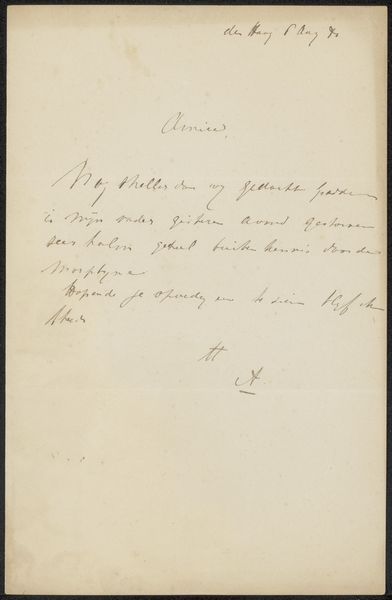 den Haag 8 Aug 80
Amice,
Nog sneller dan wij gedacht hadden
is mijn vader gisteren avond gestorven
zeer kalm geheel buiten kennis door de
morphyne
Hopende je spoedig eens te zien blijf ik
steeds
tt
A